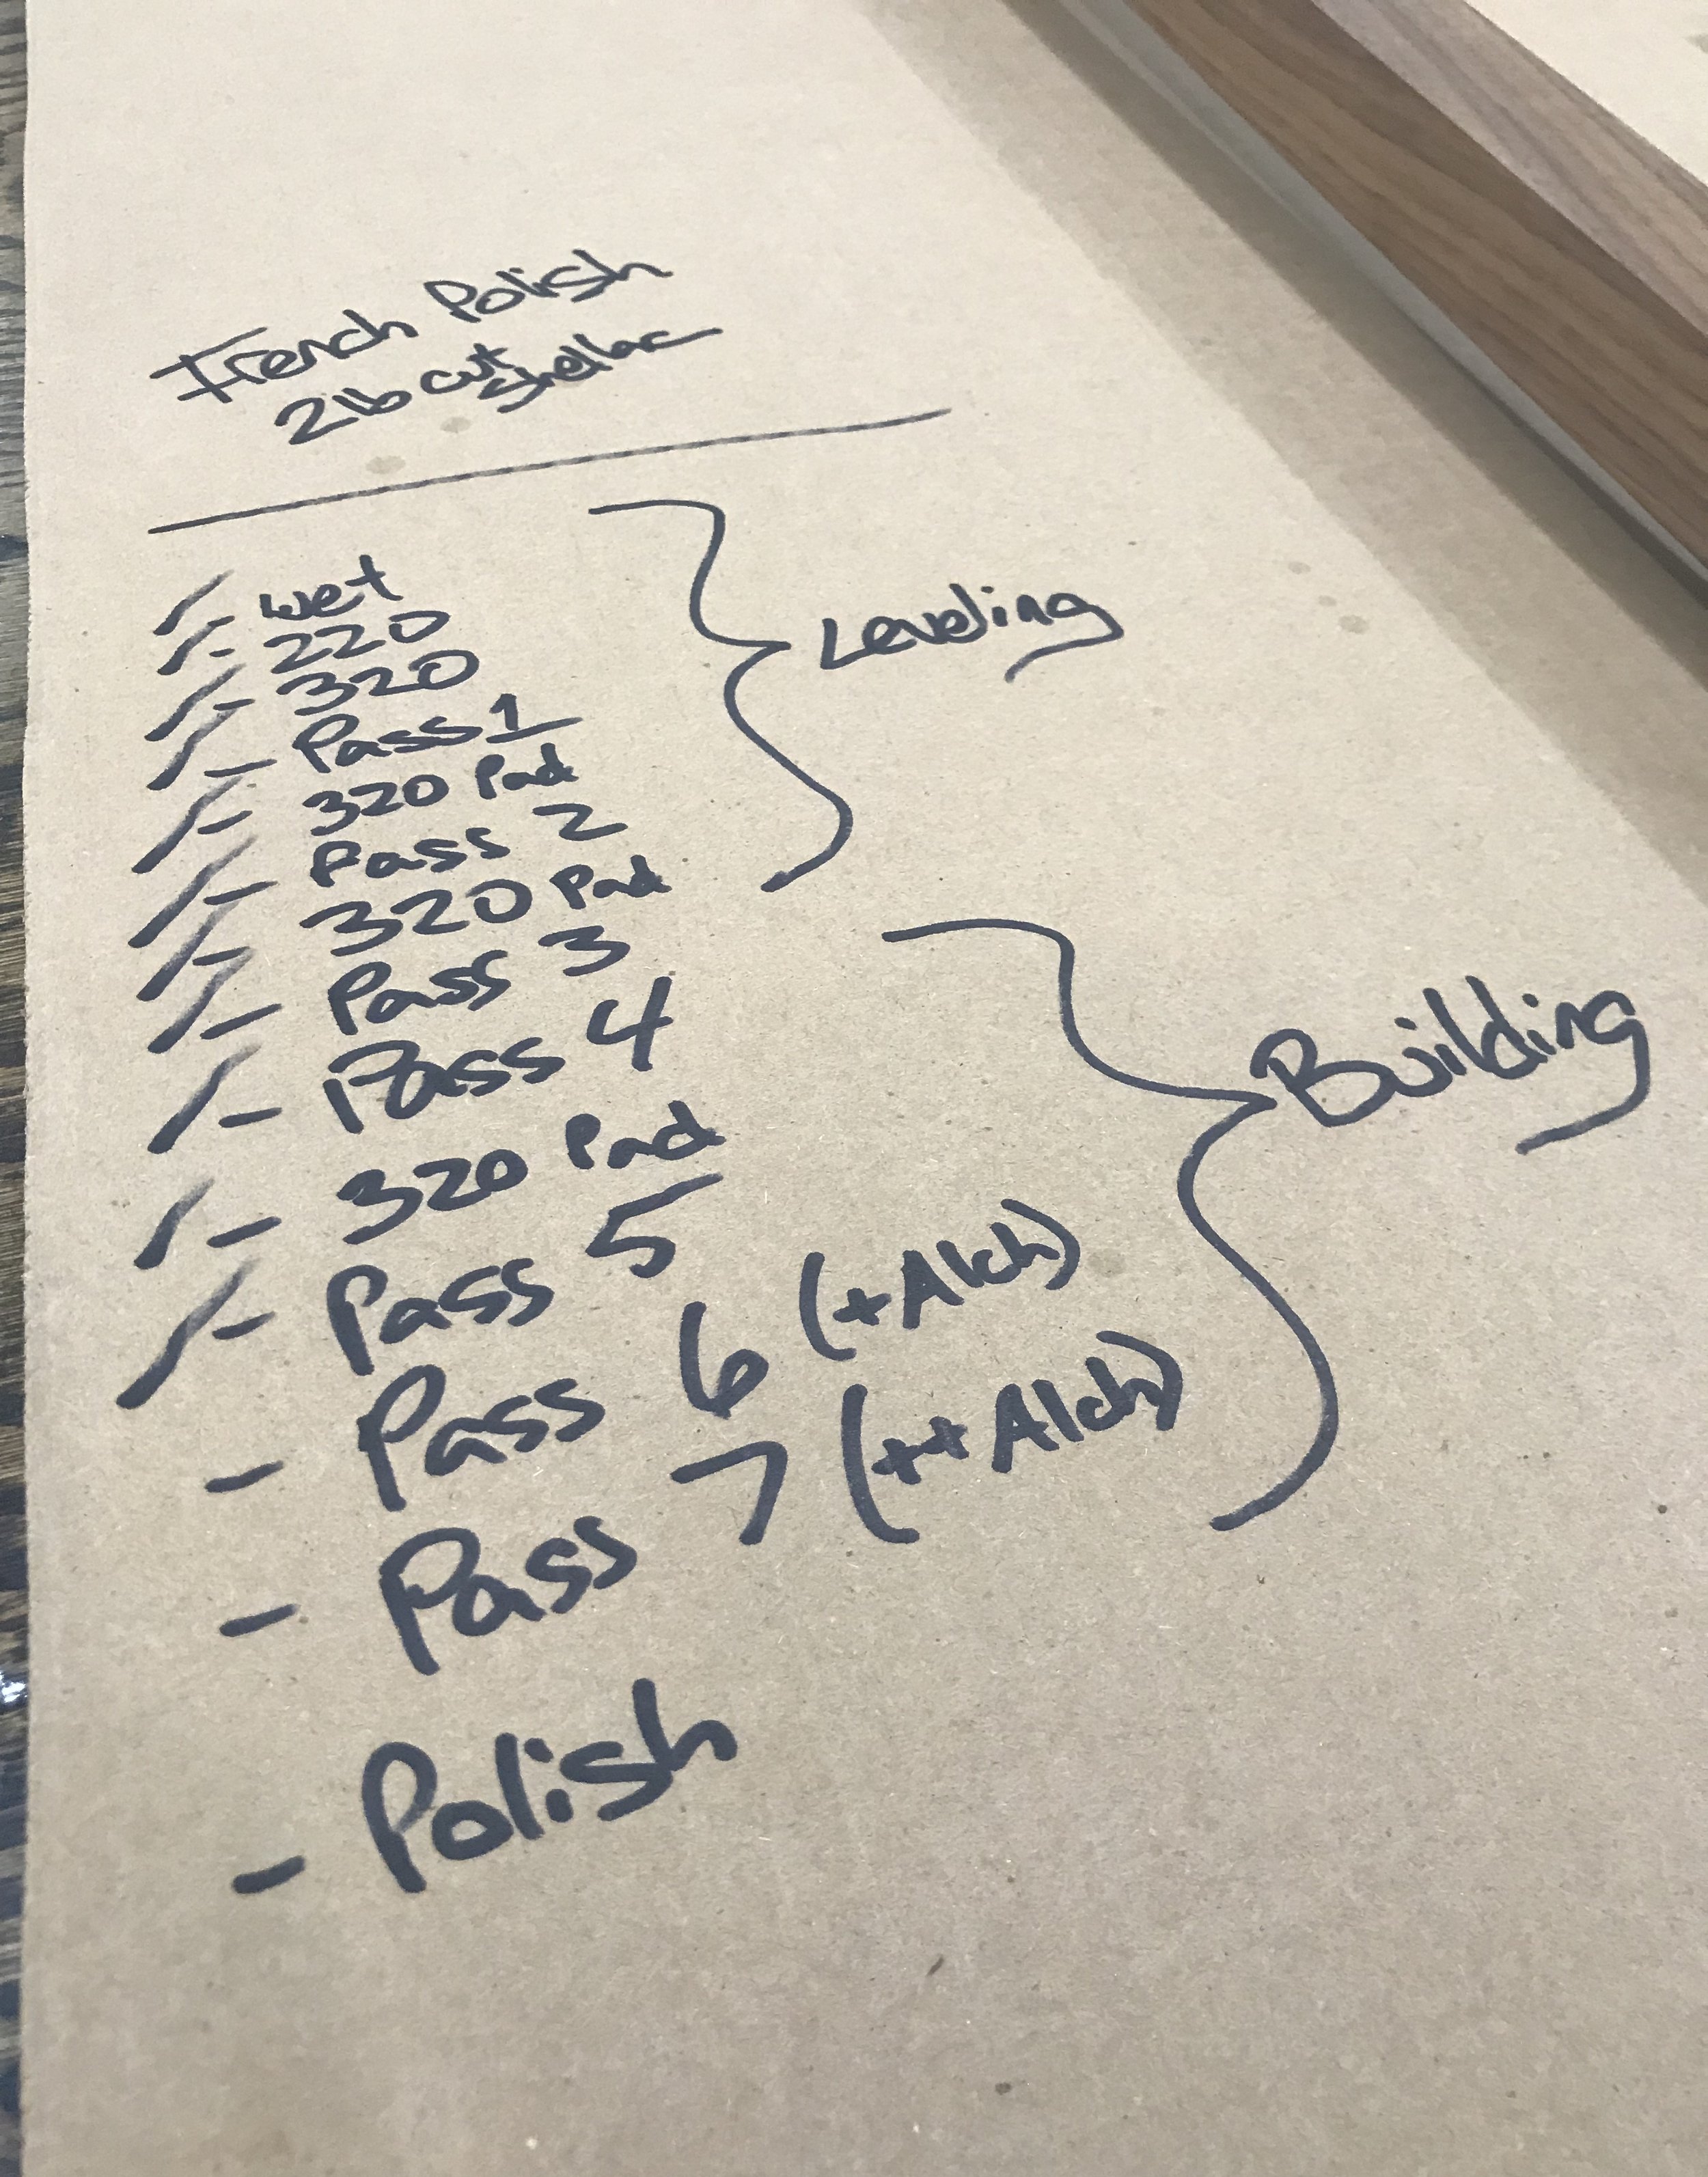 French Polish
2lb cut shellac
- wet
- 220
- 320
- Pass 1
- 320 Pad
- Pass 2
- 320 Pad
- Pass 3
- Pass 4
- 320 Pad
- Pass 5
- Pass 6 (+Alch)
- Pass 7 (++Alch)
- Polish
Leveling
Building